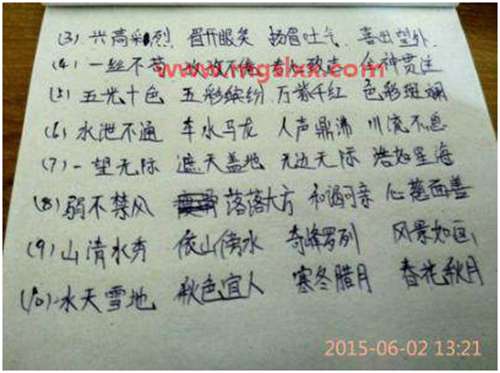 (3) 兴高彩烈 眉开眼笑 扬眉吐气 喜出望外
(4) 一丝不苟 全神贯注
www.mgslxx.com
(5) 五光十色 五彩缤纷 万紫千红 色彩斑斓
(6) 水泄不通 车水马龙 人声鼎沸 川流不息
(7) 一望无际 遮天盖地 无边无际 浩如星海
(8) 弱不禁风 落落大方 和谒可亲 心慈面善
(9) 山清水秀 依山傍水 奇峰罗列 风景如画
(10) 水天雪地 秋色宜人 寒冬腊月 春花秋月
2015-06-02 13:21